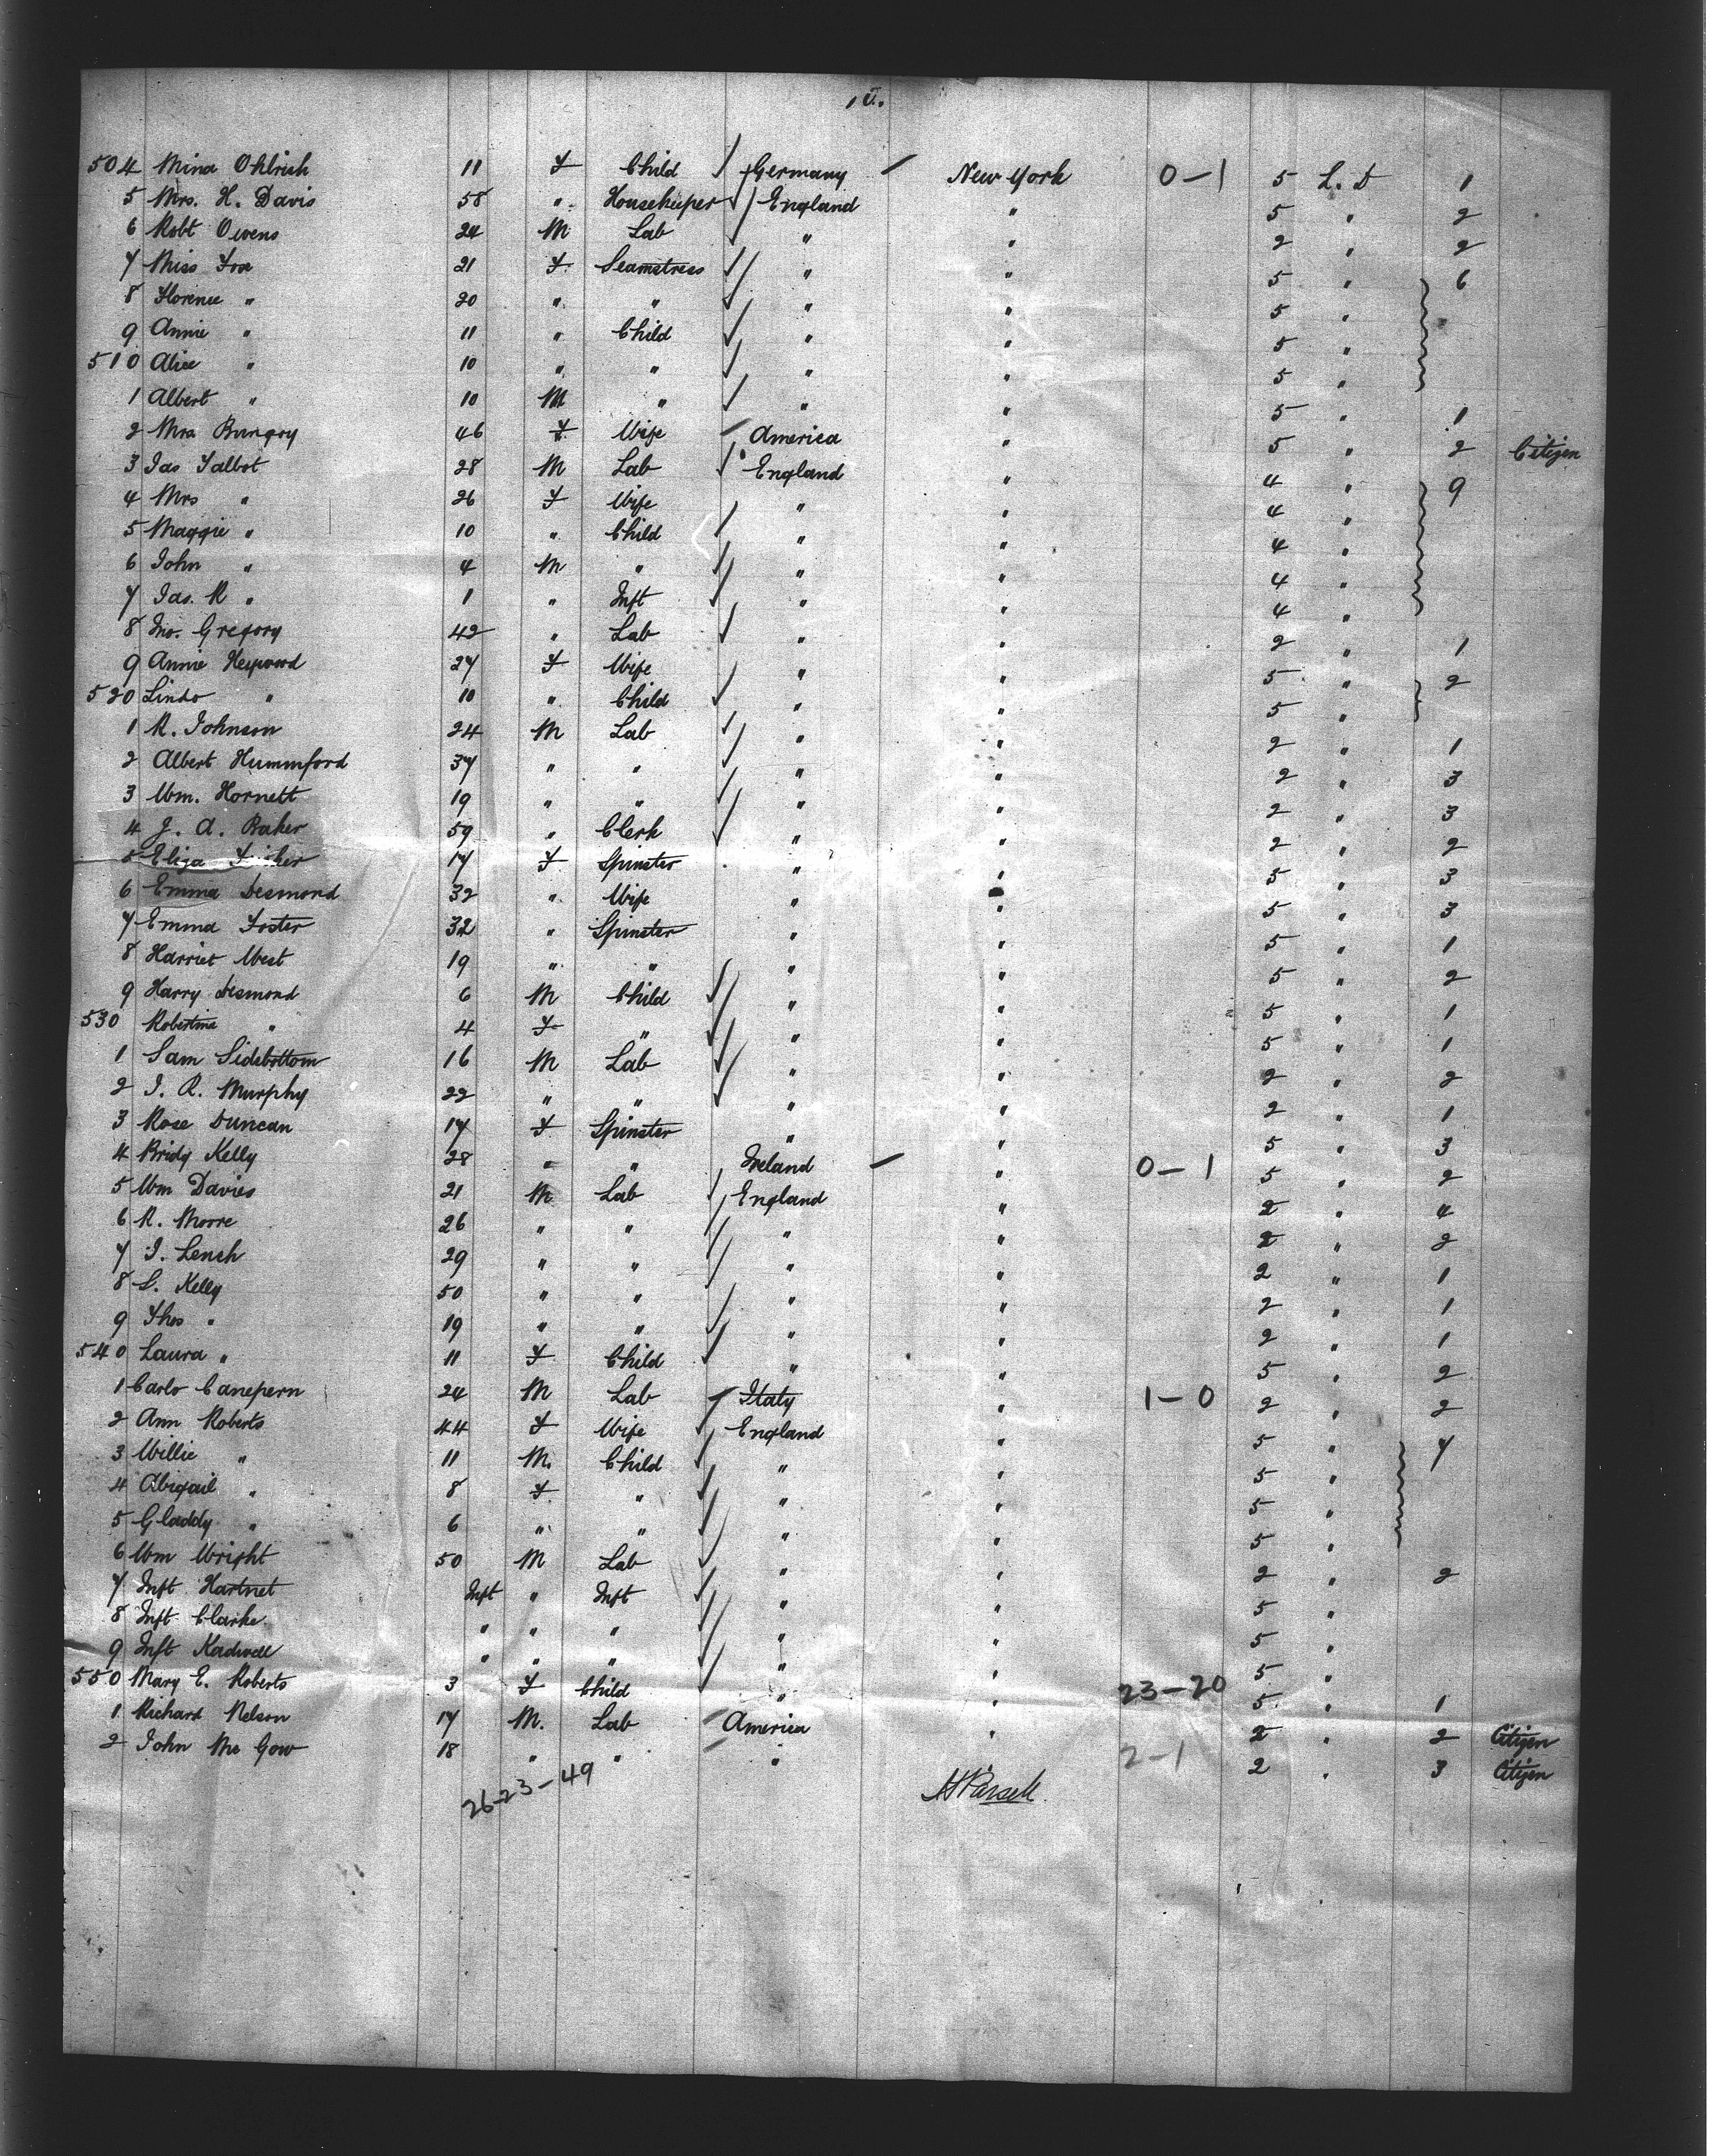 504 Mina Ohlrich 11 F Child Germany New York 0-1 5 L. D 1
5 Mrs. H. Davis 58 " Housekeeper England " 5 " 2
6 Robt Owens 24 M Lab " " 2 " 2
7 Miss Fox 21 F Seamstress " " 5 " 6
8 Florence " 20 " " " " 5 "
9 Annie " 11 " Child " " 5 "
510 Alice " 10 " " " " 5 "
1 Albert " 10 M " " " 5 " 1
2 Mrs 46 F Wife America " 5 " 2 Citizen
3 Jas Talbot 28 M Lab England " 4 " 9
4 Mrs " 26 F Wife " " 4 "
5 Maggie " 10 " Child " " 4 "
6 John " 4 M " " " 4 "
7 Jas. R " 1 " Inft " " 4 "
8 Jno. Gregory 42 " Lab " " 2 " 1
9 Annie Heywood 27 F Wife " " 5 " 2
520 " 10 " Child " " 5 "
1 R. Johnson 24 M Lab " " 2 " 1
2 Albert Hummford 37 " " " " 2 " 3
3 Wm. Hornett 19 " " " " 2 " 3
4 J. A. Baker 59 " Clerk " " 2 " 2
5 Eliza 17 F Spinster " " 5 " 3
6 Emma Desmond 32 " Wife " " 5 " 3
7 Emma Foster 32 " Spinster " " 5 " 1
8 Harriet West 19 " " " " 5 " 2
9 Harry Desmond 6 M Child " " 5 " 1
530 Robertina " 4 F " " " 5 " 1
1 Sam Sidebottom 16 M Lab " " 2 " 2
2 J. R. Murphy 22 " " " " 2 " 1
3 Rose Duncan 17 F Spinster " " 5 " 3
4 Bridy Kelly 28 " " Ireland " 0-1 5 " 2
5 Wm Davies 21 M Lab England " 2 " 4
6 R. Moore 26 " " " " 2 " 2
7 J. Lench 29 " " " " 2 " 1
8 L. Kelly 50 " " " " 2 " 1
9 Thos " 19 " " " " 2 " 1
540 Laura " 11 F Child " " 5 " 2
1 Carlo Canepern 24 M Lab Italy " 1-0 2 " 2
2 Ann Roberts 44 F Wife England " 5 " 7
3 Willie " 11 M. Child " " 5 "
4 Abigail " 8 F " " " 5 "
5 Gladdy " 6 " " " " 5 "
6 Wm Wright 50 M Lab " " 2 " 2
7 Inft Hartnet Inft " Inft " " 5 "
8 Inft Clarke " " " " " 5 "
9 Inft Kadwell " " " " " 5 "
550 Mary E. Roberts 3 F Child " " 23-20 5 " 1
1 Richard Nelson 17 M. Lab America " 2 " 2 Citizen
2 John Mc Gow 18 " " " 2-1 2 " 3 Citizen
26-23-49